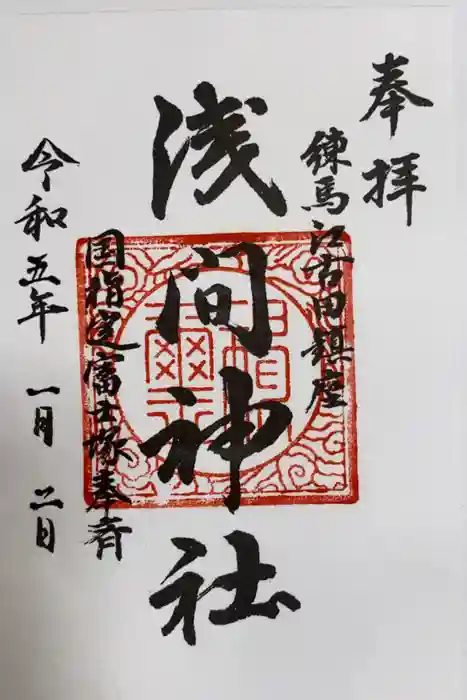 奉拝
練馬江古田鎮座
浅間神社
国指定富士塚奉斎
令和五年一月二日